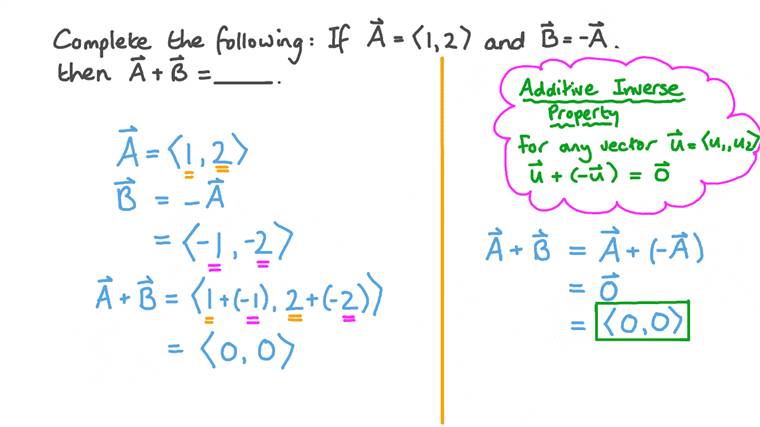 Complete the following: If A⃗ = ⟨1, 2⟩ and B⃗ = -A⃗.
then A⃗ + B⃗ = _____.
A⃗ = ⟨1, 2⟩
B⃗ = -A⃗
= ⟨-1, -2⟩
A⃗ + B⃗ = ⟨1+(-1), 2+(-2)⟩
= ⟨0, 0⟩
Additive Inverse
Property
For any vector u⃗ = ⟨u₁, u₂⟩
u⃗ + (-u⃗) = 0⃗
A⃗ + B⃗ = A⃗ + (-A⃗)
= 0⃗
= ⟨0, 0⟩